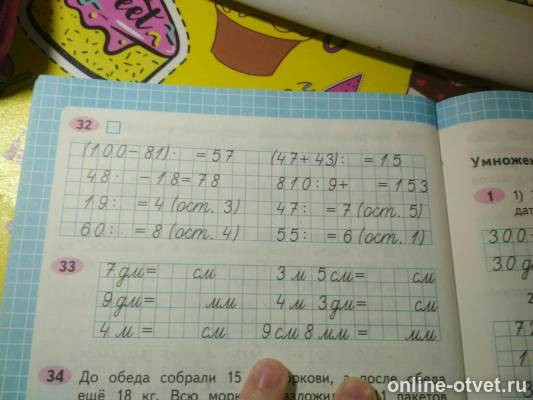 eet
32
(100-81)· =57 (47+43): =15
48· -18=78 810:9+ =153
19: =4(ост. 3) 47: =7(ост. 5)
60: =8(ост. 4) 55: =6(ост. 1)
33
7дм= см 3м 5см= см
9дм= мм 4м 3дм= см
4м= см 9см 8мм= мм
34 До обеда собрали 15 моркови, а после обеда
ещё 18 кг. Всю пакетов
Умноже
1 1)
дат
300
30д
2
72
1
3
online-otvet.ru